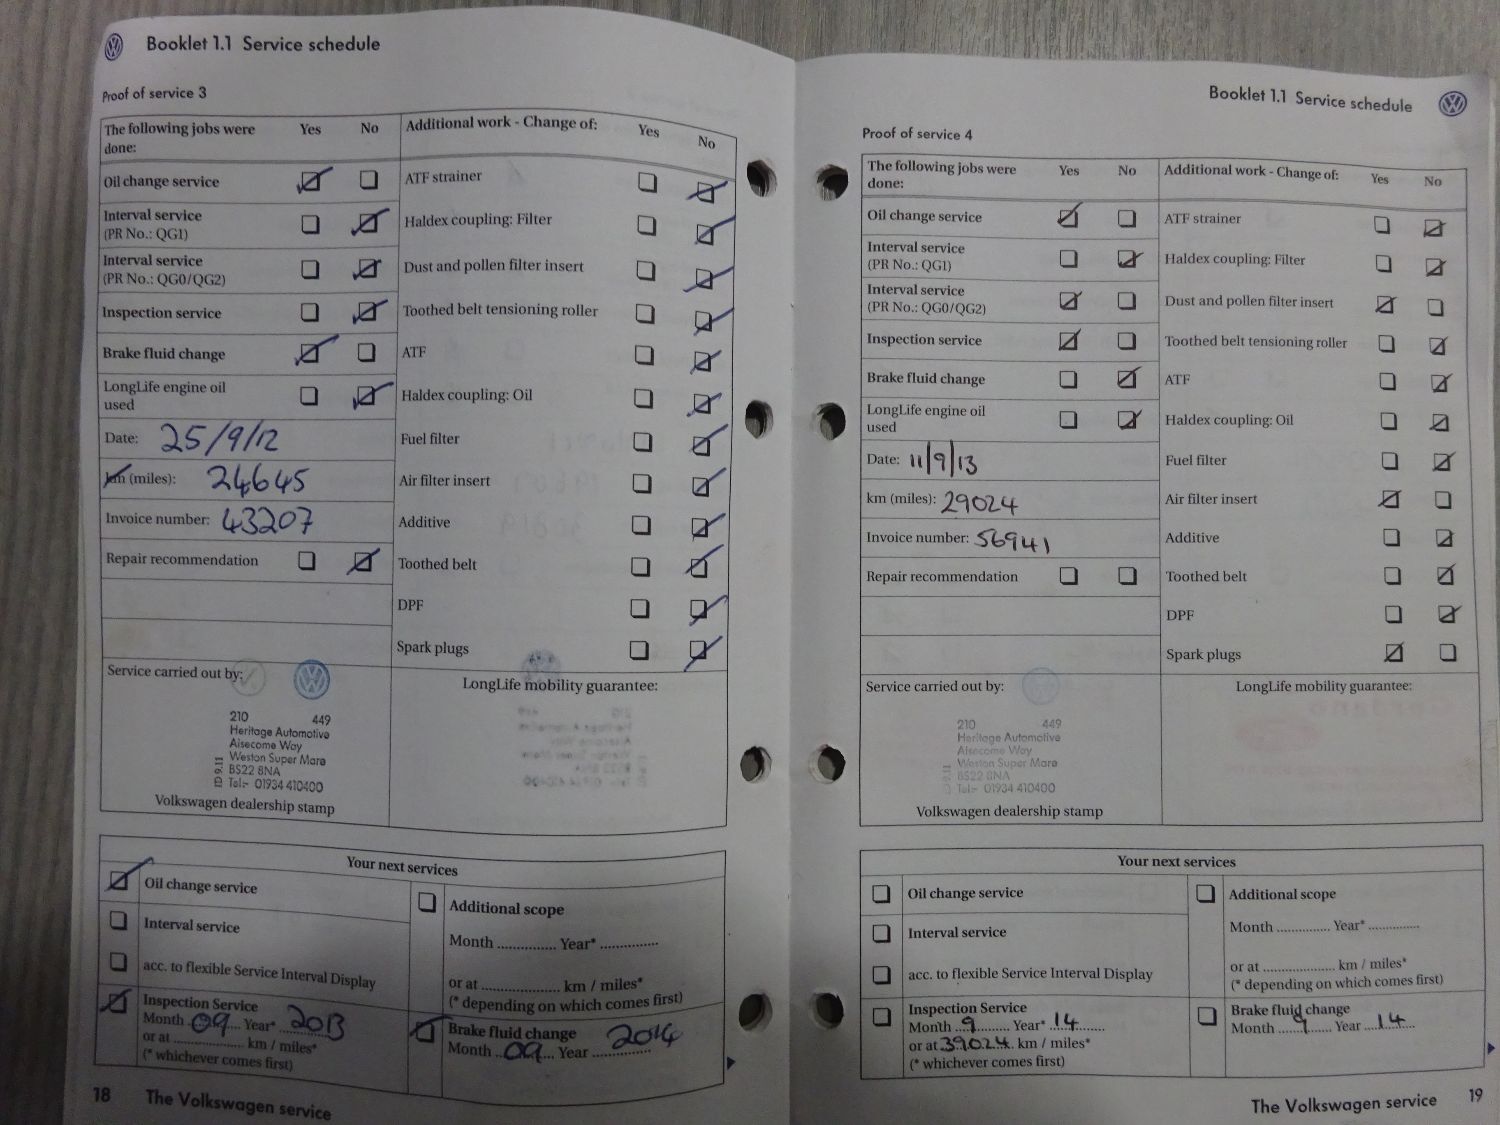 Booklet 1.1 Service schedule
Proof of service 3
The following jobs were done: Yes No
Additional work - Change of: Yes No
Oil change service
Interval service
(PR No.: QG1)
Interval service
(PR No.: QG0/QG2)
Inspection service
Brake fluid change
LongLife engine oil
used
Date: 25/9/12
km (miles): 24645
Invoice number: 43207
Repair recommendation
ATF strainer
Haldex coupling: Filter
Dust and pollen filter insert
Toothed belt tensioning roller
ATF
Haldex coupling: Oil
Fuel filter
Air filter insert
Additive
Toothed belt
DPF
Spark plugs
Service carried out by:
210 449
Heritage Automotive
Aisecome Way
Weston Super Mare
BS22 8NA
Tel:- 01934 410400
Volkswagen dealership stamp
LongLife mobility guarantee:
Your next services
Oil change service
Interval service
acc. to flexible Service Interval Display
Inspection Service
Month 09 Year* 2013
or at .................. km / miles*
(* whichever comes first)
Additional scope
Month ............... Year* ...............
or at .................... km / miles*
(* depending on which comes first)
Brake fluid change
Month 09 Year 2014
18 The Volkswagen service
Booklet 1.1 Service schedule
Proof of service 4
The following jobs were done: Yes No
Additional work - Change of: Yes No
Oil change service
Interval service
(PR No.: QG1)
Interval service
(PR No.: QG0/QG2)
Inspection service
Brake fluid change
LongLife engine oil
used
Date: 11/9/13
km (miles): 29024
Invoice number: 56941
Repair recommendation
ATF strainer
Haldex coupling: Filter
Dust and pollen filter insert
Toothed belt tensioning roller
ATF
Haldex coupling: Oil
Fuel filter
Air filter insert
Additive
Toothed belt
DPF
Spark plugs
Service carried out by:
210 449
Heritage Automotive
Aisecome Way
Weston Super Mare
BS22 8NA
Tel:- 01934 410400
Volkswagen dealership stamp
LongLife mobility guarantee:
Your next services
Oil change service
Interval service
acc. to flexible Service Interval Display
Inspection Service
Month 9 Year* 14
or at 39024 km / miles*
(* whichever comes first)
Additional scope
Month .............. Year* ..............
or at .................... km / miles*
(* depending on which comes first)
Brake fluid change
Month 9 Year 14
The Volkswagen service 19